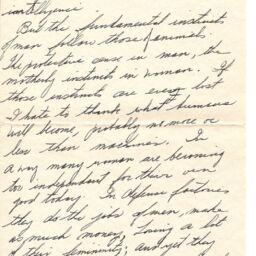 intelligence.
But the fundamental instincts
of man follow those of animals.
The protective sense in man, the
motherly instincts in woman. If
those instincts are ever lost
I hate to think what humans
will become, probably no more or
less than machines. In
a way many woman are becoming
too independant for their own
good today. In defense factories
they do the jobs of men, make
as much money, losing a lot
of their femininity; and yet they